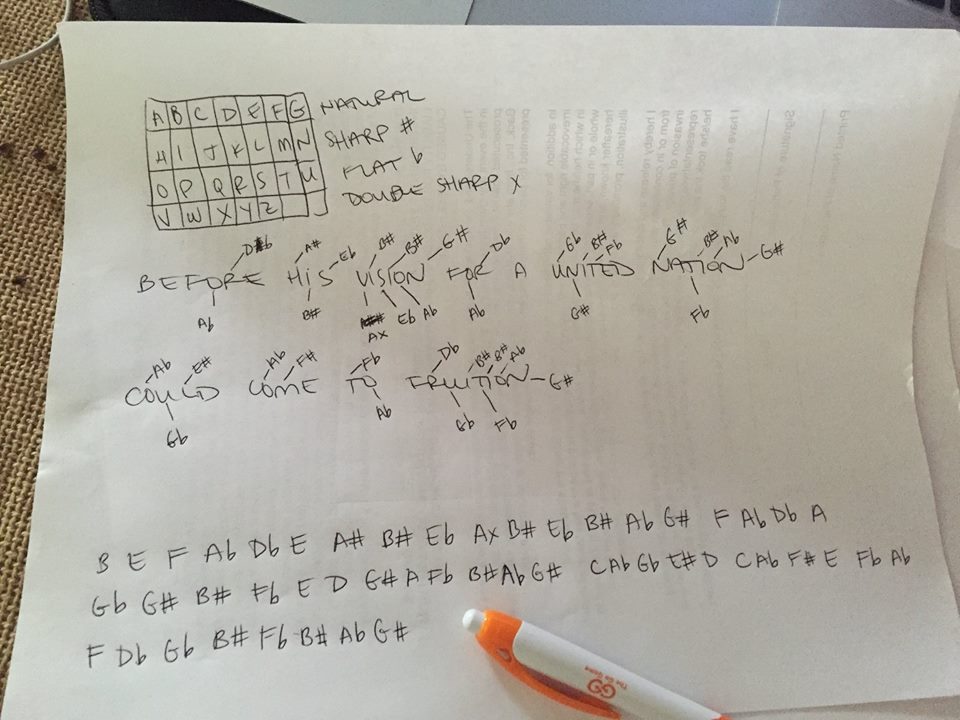 A B C D E F G NATURAL
H I J K L M N SHARP #
O P Q R S T U FLAT b
V W X Y Z DOUBLE SHARP X
Db A# Eb B# B# G# Db Gb B# Fb G# B# Ab G#
BEFORE HIS VISION FOR A UNITED NATION
Ab B# Ax Eb Ab Ab G# Fb
Ab E# Ab F# Fb Db B# B# Ab
COULD COME TO FRUITION G#
Gb Ab Gb Fb
B E F Ab Db E A# B# Eb Ax B# Eb B# Ab G# F Ab Db A
Gb G# B# Fb E D G# A Fb B# Ab G# C Ab Gb E# D C Ab F# E Fb Ab
F Db Gb B# Fb B# Ab G#